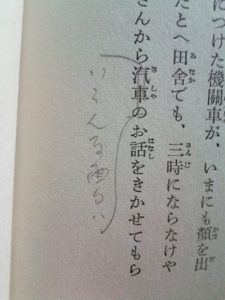 につけた機關車が、いまにも顏を出
たとへ田舍でも、三時にならなけや
さんから汽車のお話をきかせてもら
いろんな面白い